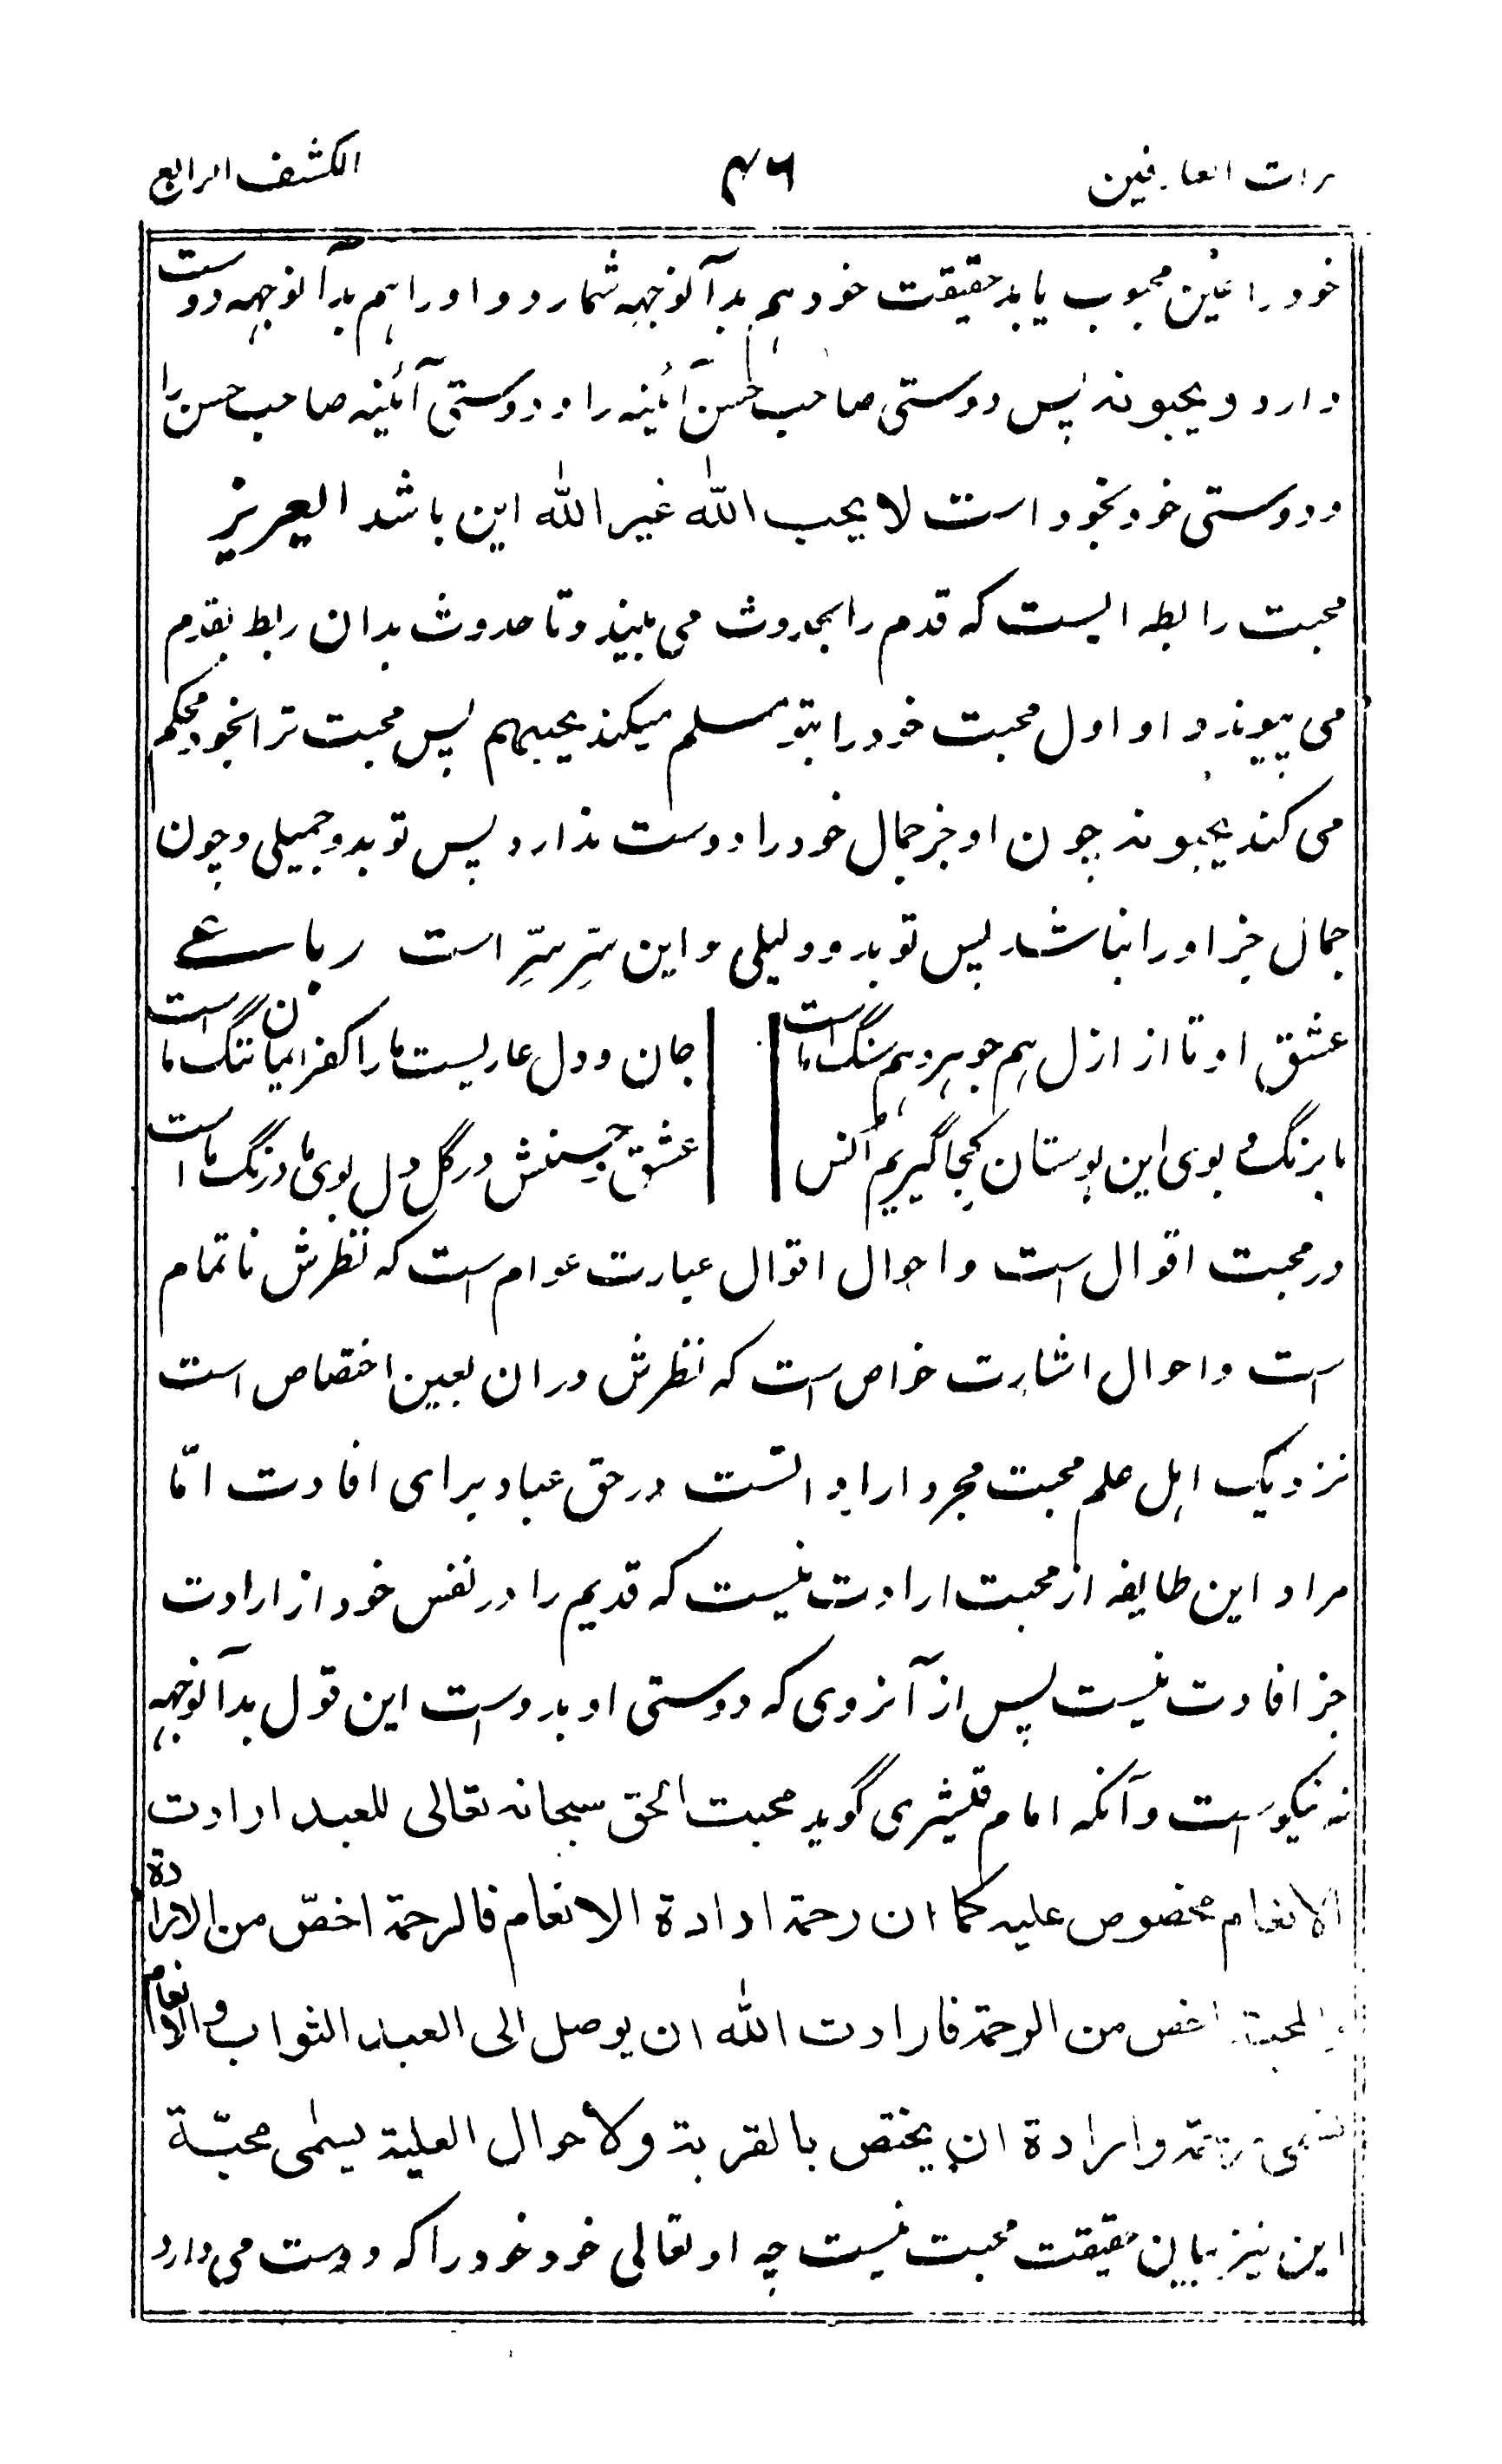 مرات العارفین ۴۶ الکشف الرابع
خود را عین محبوب یابد حقیقت خود هم بدآنوجهه شمارد و او را هم بدآنوجهه دوست
دارد و یحبونه پس دوستی صاحب حسن آئینه را و دوستی آئینه صاحب حسن را
و دوستی خود بخود است لا یحب الله غیر الله این باشد العزیز
محبت رابطه ایست که قدم را بحدوث می بیند و تا حدوث بدان ربط بقدم
می پیوندد و او اول محبت خود را بتو مسلم میکند یحبهم پس محبت ترا بخود محکم
می کند یحبونه چون او جز جمال خود را دوست ندارد پس تو بدو جمیلی و چون
جمال جز او را نباشد پس تو بدو دلیلی و این سِرِّ سِرّ است رباعے
عشق او تا از ازل هم جوهر و هم سنگ ماست جان و دل عاریست ما را کفر ایمان ننگ ماست
ما برنگ و بوی این بوستان کجا گیریم انس عشق حسنش در گل دل بوی ما و رنگ ماست
در محبت اقوال است و احوال اقوال عبارت عوام است که نظرش ناتمام
است و احوال اشارت خواص است که نظرش در ان بعین اختصاص است
نزدیک اهل علم محبت مجرد ارادتست در حق عباد برای افادت امّا
مراد این طایفه از محبت ارادت نیست که قدیم را در نفس خود از ارادت
جز افادت نیست پس از آنروی که دوستی او بدوست این قول بدآنوجهه
نه نیکوست و آنکه امام قشیری گوید محبت الحق سبحانه تعالی للعبد ارادت
الانعام مخصوص علیه کما ان رحمة ارادة الانعام فالرحمة اخصّ من الارادة
والمحبة اخص من الرحمة فارادت الله ان یوصل الی العبد الثواب والانعام
تسمی رحمة وارادة ان یختص بالقربة ولاحوال العلیة یسمّی محبّة
این نیز بیان حقیقت محبت نیست چه او تعالی خود خود را که دوست می دارد